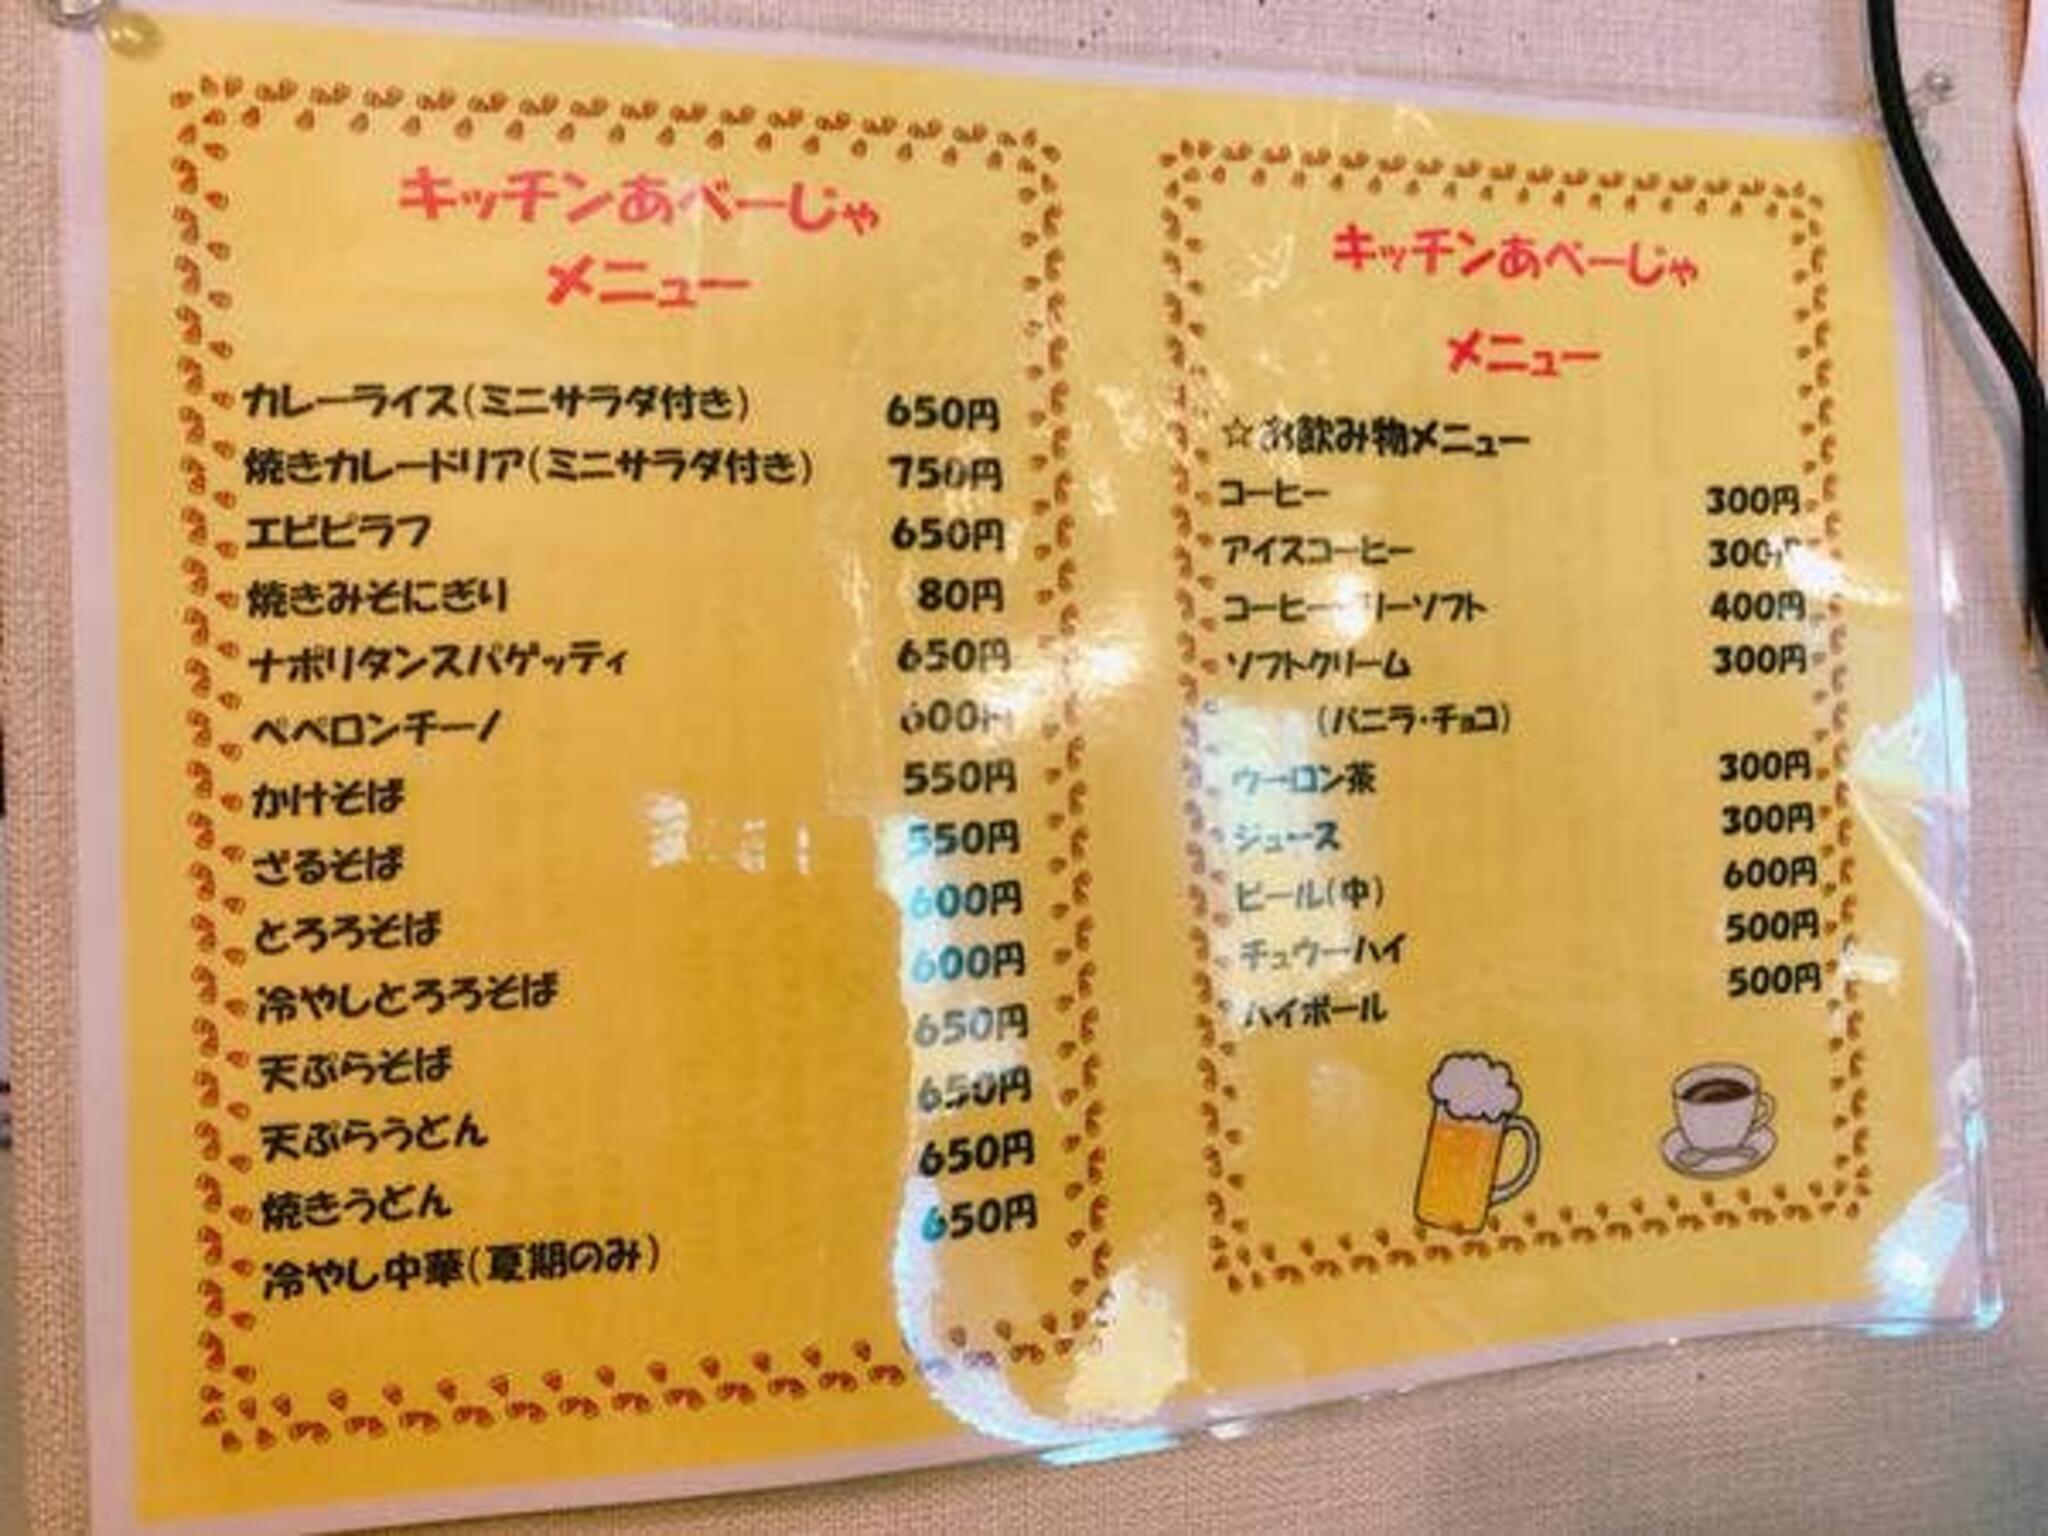 キッチンあべーじゃ
メニュー
カレーライス(ミニサラダ付き) 650円
焼きカレードリア(ミニサラダ付き) 750円
エビピラフ 650円
焼きみそにぎり 80円
ナポリタンスパゲッティ 650円
ペペロンチーノ 600円
かけそば 550円
ざるそば 550円
とろろそば 600円
冷やしとろろそば 600円
天ぷらそば 650円
天ぷらうどん 650円
焼きうどん 650円
冷やし中華(夏期のみ) 650円
キッチンあべーじゃ
メニュー
☆お飲み物メニュー
コーヒー 300円
アイスコーヒー 300円
コーヒーゼリーソフト 400円
ソフトクリーム 300円
(バニラ・チョコ)
ウーロン茶 300円
ジュース 300円
ビール(中) 600円
チュウーハイ 500円
ハイボール 500円